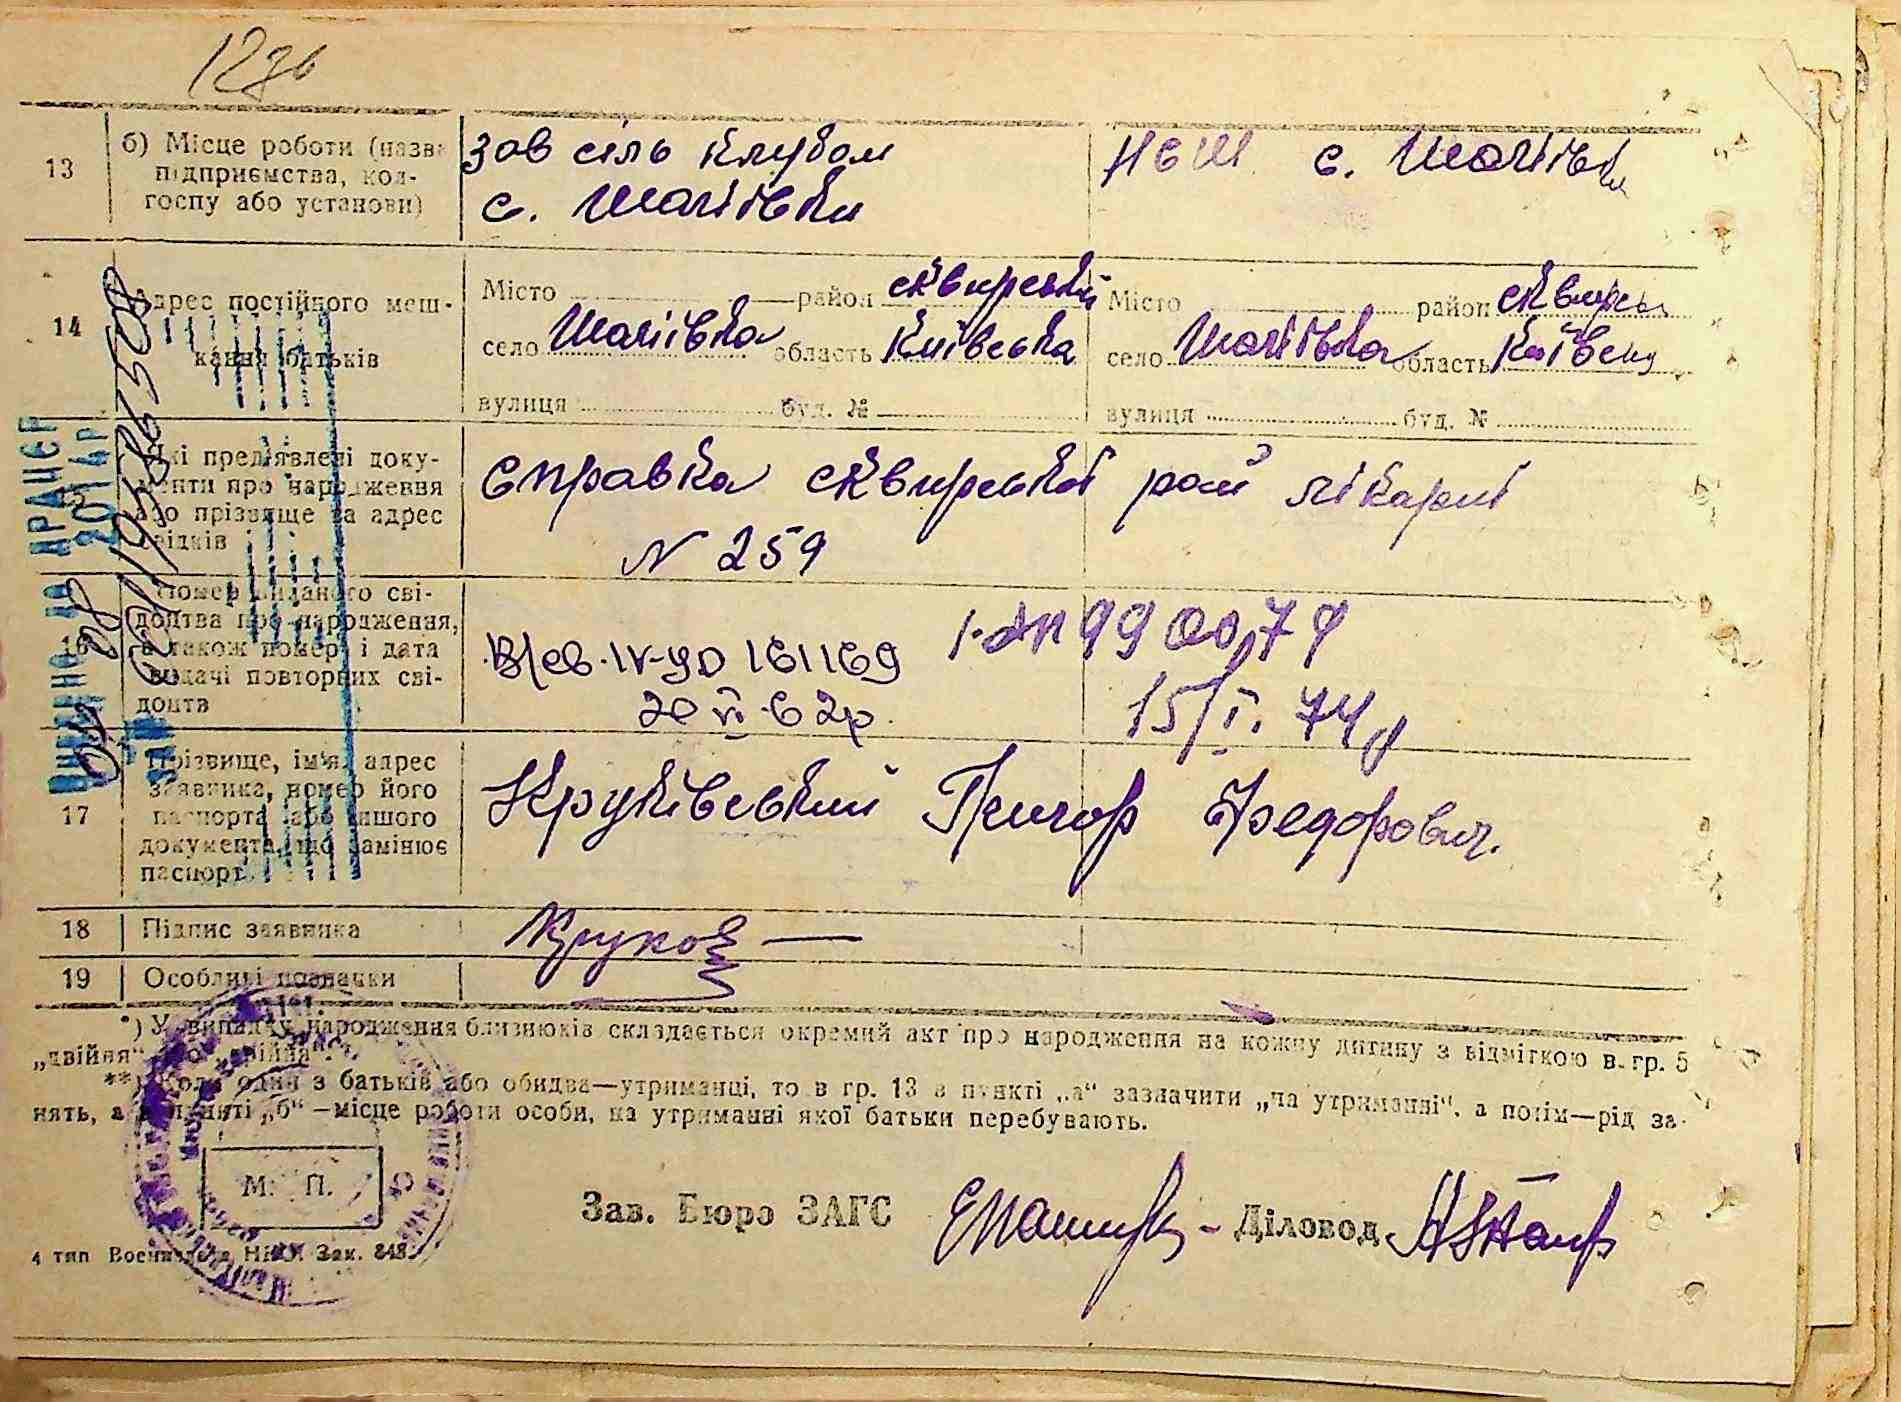 12зв
13
б) Місце роботи (назва підприємства, колгоспу або установи)
Зав сіль клубом
с. Шаліївки
НСШ с. Шаліївки
14
Адрес постійного мешкання батьків
Місто район сквирський
село Шаліївка область Київська
вулиця буд. №
Місто район сквирськ
село Шаліївка область Київськ
вулиця буд. №
15
Які пред'явлені документи про народження або прізвище та адрес свідків
Справка сквирської рай лікарні
N 259
16
Номер виданого свідоцтва про народження, а також номер і дата видачі повторних свідоцтв
IV-УД 161169
20 VI 62р.
990079
15/I. 74р
17
Прізвище, ім'я, адрес заявника, номер його паспорта або іншого документа, що замінює паспорт
Круківський Григор Федорович.
18
Підпис заявника
19
Особливі позначки
*) У випадку народження близнюків складається окремий акт про народження на кожну дитину з відміткою в гр. 5
„двійня“ або „трійня“.
**) Коли один з батьків або обидва—утриманці, то в гр. 13 в пункті „а“ зазначити „на утриманні“, а потім—рід за-
нять, а в пункті „б“—місце роботи особи, на утриманні якої батьки перебувають.
М. П.
Зав. Бюро ЗАГС
Діловод
4 тип Зак. 848
ДРАЦСГ
2014р